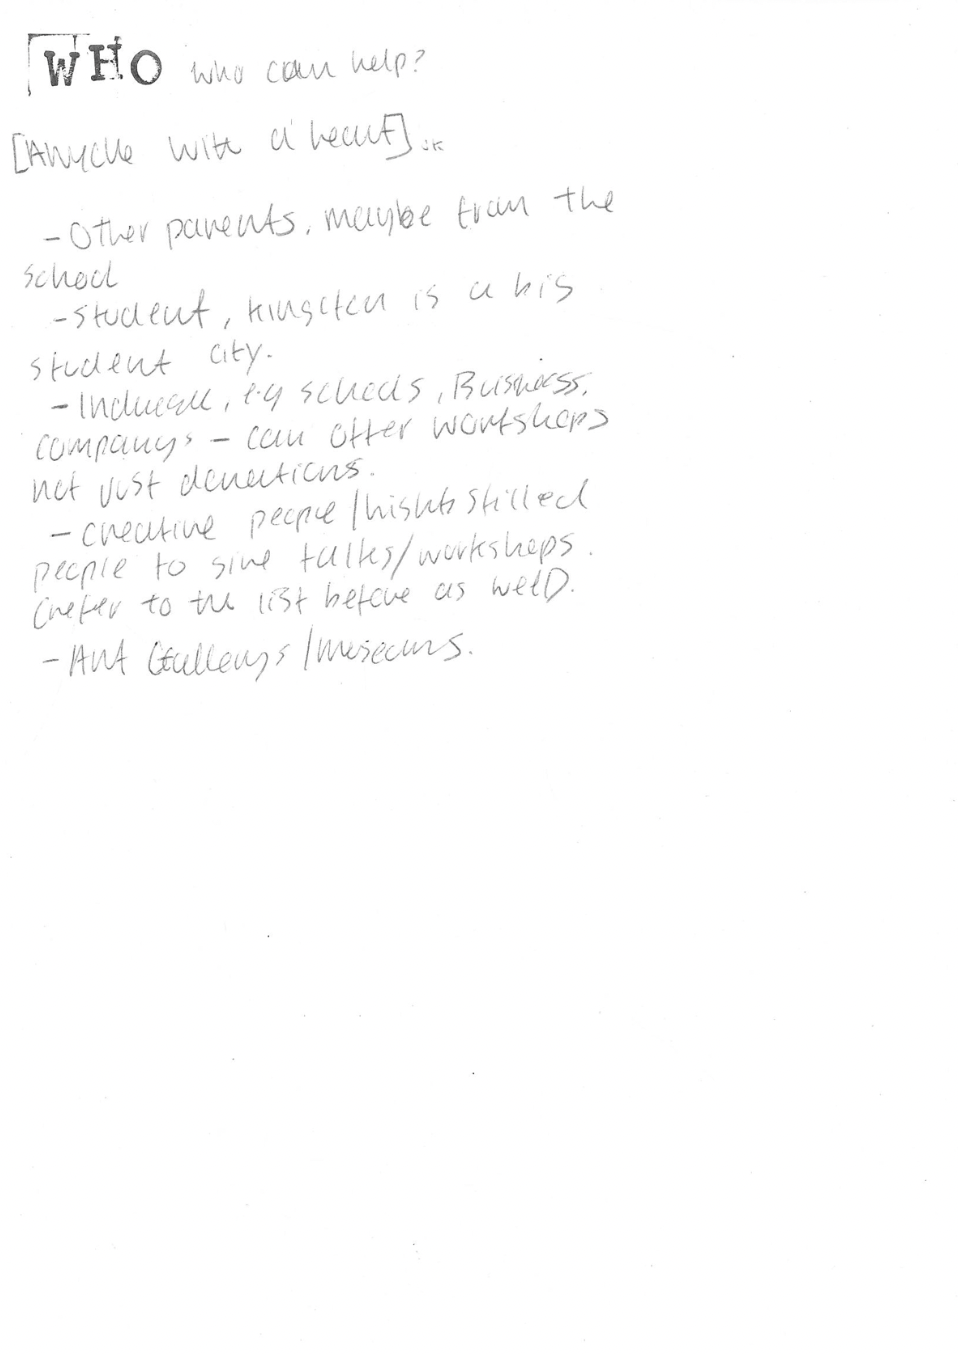 WHO who can help?
[Anyone with a heart]..JK
- Other parents, maybe from the
school
- Student, Kingston is a big
student city.
- , e.g schools, Business,
companys - can offer workshops
not just donations.
- creative people/highly skilled
people to give talks/workshops.
(refer to the list before as well).
- Art Gallerys/museums.